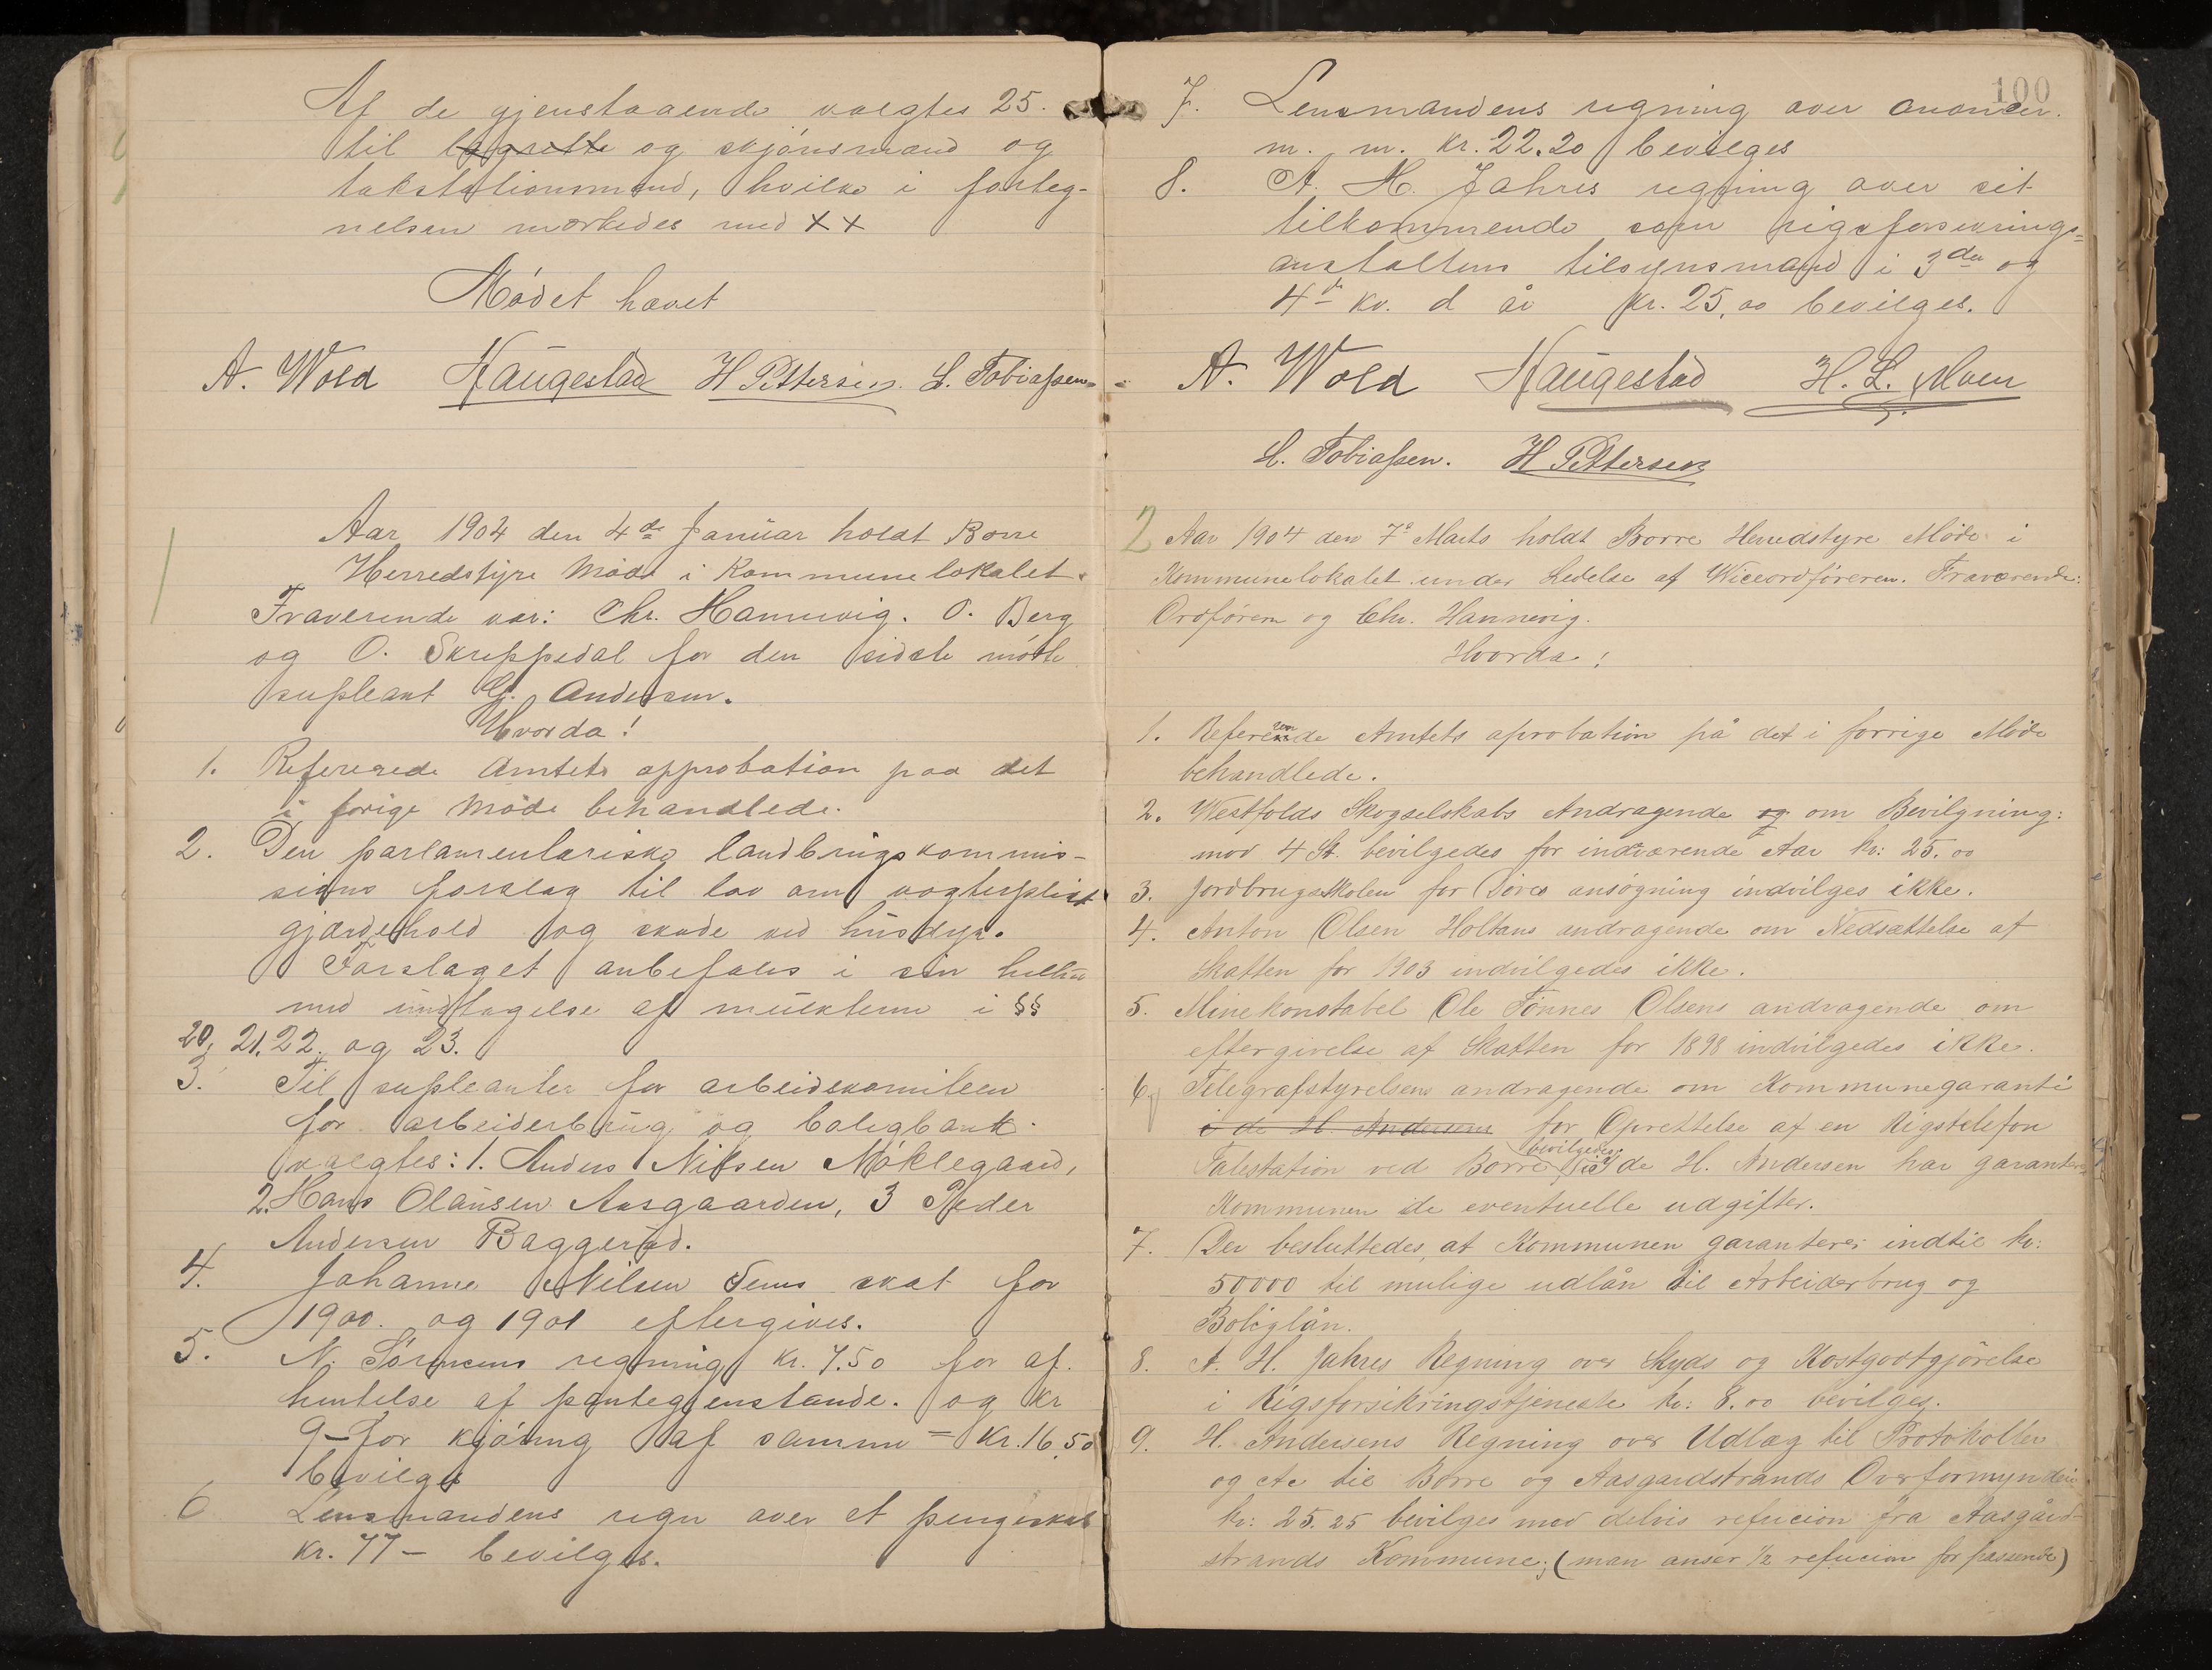 Af de gjenstaaende valgtes 25.
til lagrette og skjønsmænd og
takstationsmænd, hvilke i forteg-
nelsen mærkedes med ××
Mødet hævet
A. Wold Haugestad H Pettersen. L. Tobiassen
1
Aar 1904 den 4de Januar holdt Borre
Herredstyre Møde i Kommunelokalet.
Fraverende var: Chr. Hannevig. O. Berg
og O. Skreppedal for den sidste møtte
supleant G. Andersen.
Hvorda!
1. Refererede Amtets approbation paa det
i forige Møde behandlede.
2. Den parlamentariske landbrugskommis-
sions forslag til lov om vogterplikt
gjærdehold og skade ved husdyr.
Forslaget anbefales i sin helhed
med undtagelse af mulkterne i §§
20, 21. 22. og 23.
3. Til supleanter for arbeidskomiteen
for arbeiderbrug og boligbank
valgtes: 1. Anders Nilsen Nøklegaard,
2. Hans Olausen Aasgaarden, 3 Peder
Andersen Baggerød.
4. Johanne Nilsen Sems skat for
1900. og 1901 eftergives.
5. N. Sørensens regning kr. 7.50 for af.
hentelse af pantegjenstande. og kr
9- for kjøring af samme = kr. 16,50
bevilges
6 Lensmandens regn over et pengeskab
kr. 77- bevilges.
100
7. Lensmandens regning over anoncer.
m. m. kr. 22.20 bevilges
8. A. H. Jahres regning over sit
tilkommende som rigsforsikrings-
anstaltens tilsynsmand i 3die og
4de kv. d år kr. 25,00 bevilges.
A. Wold Haugestad H. L. Moen
L. Tobiassen. H Pettersen
2 Aar 1904 den 7de Marts holdt Borre Herredstyre Møde i
Kommunelokalet under Ledelse af Viceordføreren. Fraværende:
Ordføren og Chr. Hannevig.
Hvorda:
1. Refererede Amtets aprobation på det i forrige Møde
behandlede.
2. Westfolds Skogselskabs Andragende og om Bevilgning:
mod 4 St. bevilgedes for indværende Aar kr: 25.00
3. Jordbrugsskolen for Døves ansøgning indvilges ikke.
4. Anton Olsen Holtans andragende om Nedsættelse af
Skatten for 1903 indvilgedes ikke.
5. Minekonstabel Ole Tønnes Olsens andragende om
eftergivelse af Skatten for 1898 indvilgedes ikke.
6. Telegrafstyrelsens andragende om Kommunegaranti
i de H. Andersens for Oprettelse af en Rigstelefon
bevilgedes,
Talestation ved Borre, idet de H. Andersen har garanteret
Kommunen de eventuelle udgifter.
7. Der besluttedes, at Kommunen garanterer indtil kr:
50000 til mulige udlån til Arbeiderbrug og
Boliglån.
8. A. H. Jahres Regning over Skyds og Kostgodtgjørelse
i Rigsforsikringstjeneste kr: 8.00 bevilges.
9. H. Andersens Regning over Udlæg til Protokoller
og Ae til Borre og Aasgardstrands Overformynderi
kr: 25.25 bevilges mod delvis refucion fra Aasgård-
strands Kommune; (man anser 1/2 refucion for passende)